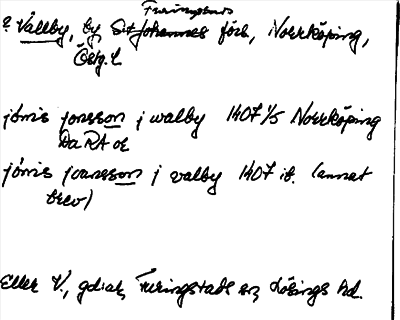 Furingstads
? Vallby, by St Johannes förs, Norrköping,
Östg. l
jönis jonsson j walby 1407 1/5 Norrköping
Da RA or
jönis joansson j valby 1407 ib. (annat
brev)
Eller V., gd i ak, Furingstads sn, Lösings hd.